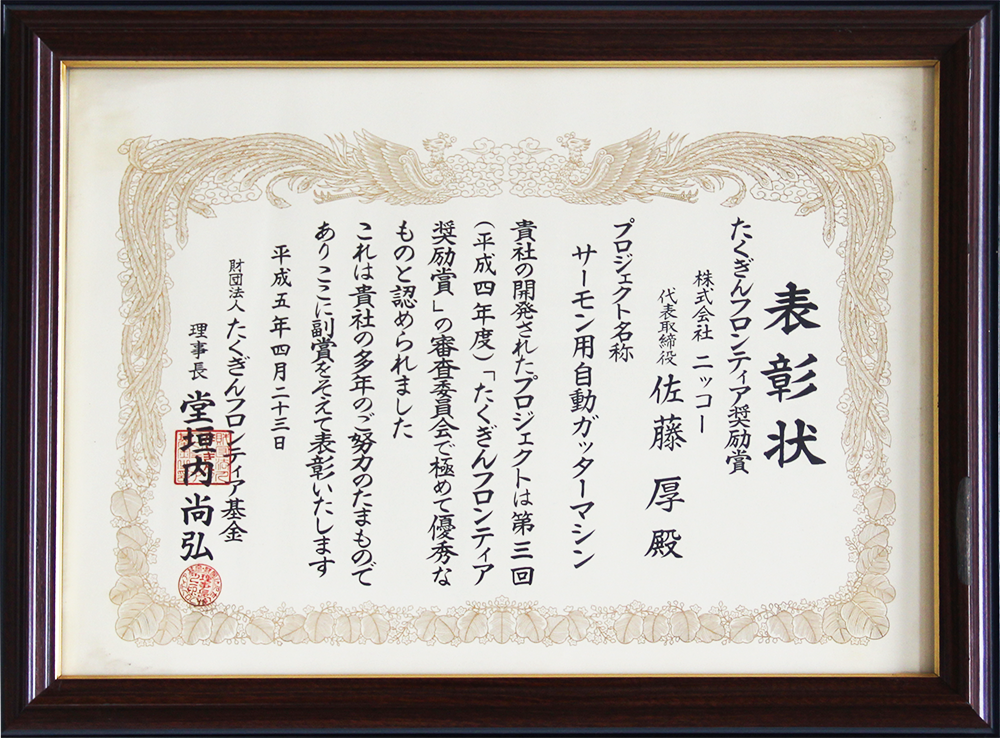 表彰状
たくぎんフロンティア奨励賞
株式会社 ニッコー
代表取締役 佐藤 厚 殿
プロジェクト名称
サーモン用自動ガッターマシン
貴社の開発されたプロジェクトは第三回
(平成四年度)「たくぎんフロンティア
奨励賞」の審査委員会で極めて優秀な
ものと認められました
これは貴社の多年のご努力のたまもので
ありここに副賞をそえて表彰いたします
平成五年四月二十三日
財団法人 たくぎんフロンティア基金
理事長 堂垣内 尚弘